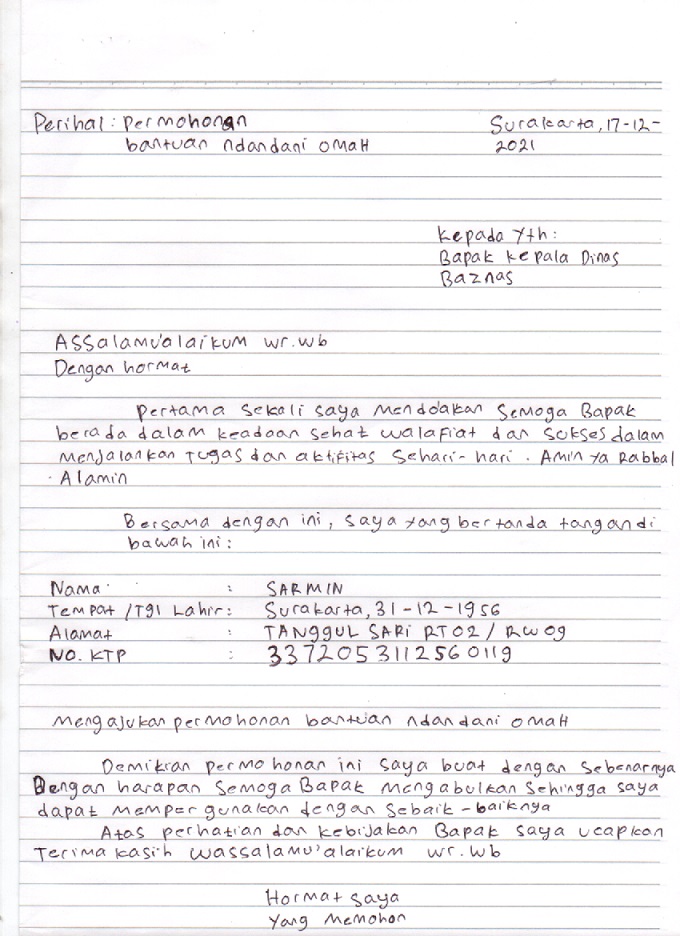 Perihal: permohonan Surakarta, 17-12-
bantuan ndandani omaH 2021
Kepada Yth:
Bapak kepala Dinas
Baznas
Assalamu'alaikum wr.wb
Dengan hormat
pertama sekali saya mendo'akan semoga Bapak
berada dalam keadaan sehat walafiat dan sukses dalam
menjalankan Tugas dan aktifitas sehari-hari. Amin Ya Rabbal
Alamin
Bersama dengan ini, saya yang bertanda tangan di
bawah ini:
Nama : SARMIN
Tempat/Tgl Lahir: Surakarta, 31-12-1956
Alamat : TANGGUL SARI RT02/RW09
NO. KTP : 3372053112560119
mengajukan permohonan bantuan ndandani omaH
Demikian permohonan ini saya buat dengan sebenarnya
Dengan harapan semoga Bapak mengabulkan sehingga saya
dapat mempergunakan dengan sebaik-baiknya
Atas perhatian dan kebijakan Bapak saya ucapkan
Terima kasih wassalamu'alaikum wr.wb
Hormat saya
Yang memohon